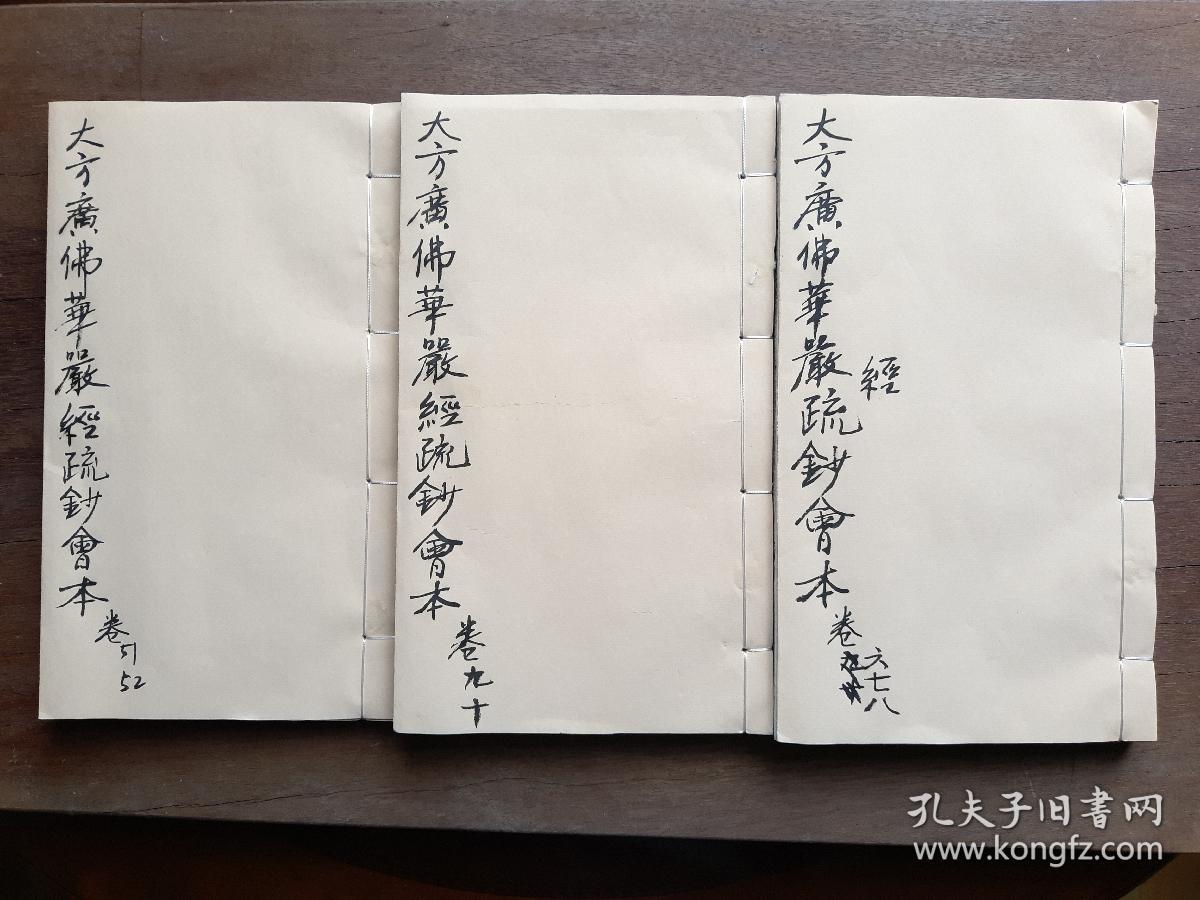 大方廣佛華嚴經疏鈔會本
卷51
52
大方廣佛華嚴經疏鈔會本
卷九十
大方廣佛華嚴疏鈔會本
經
卷
六七八
孔夫子旧書网
www.kongfz.com